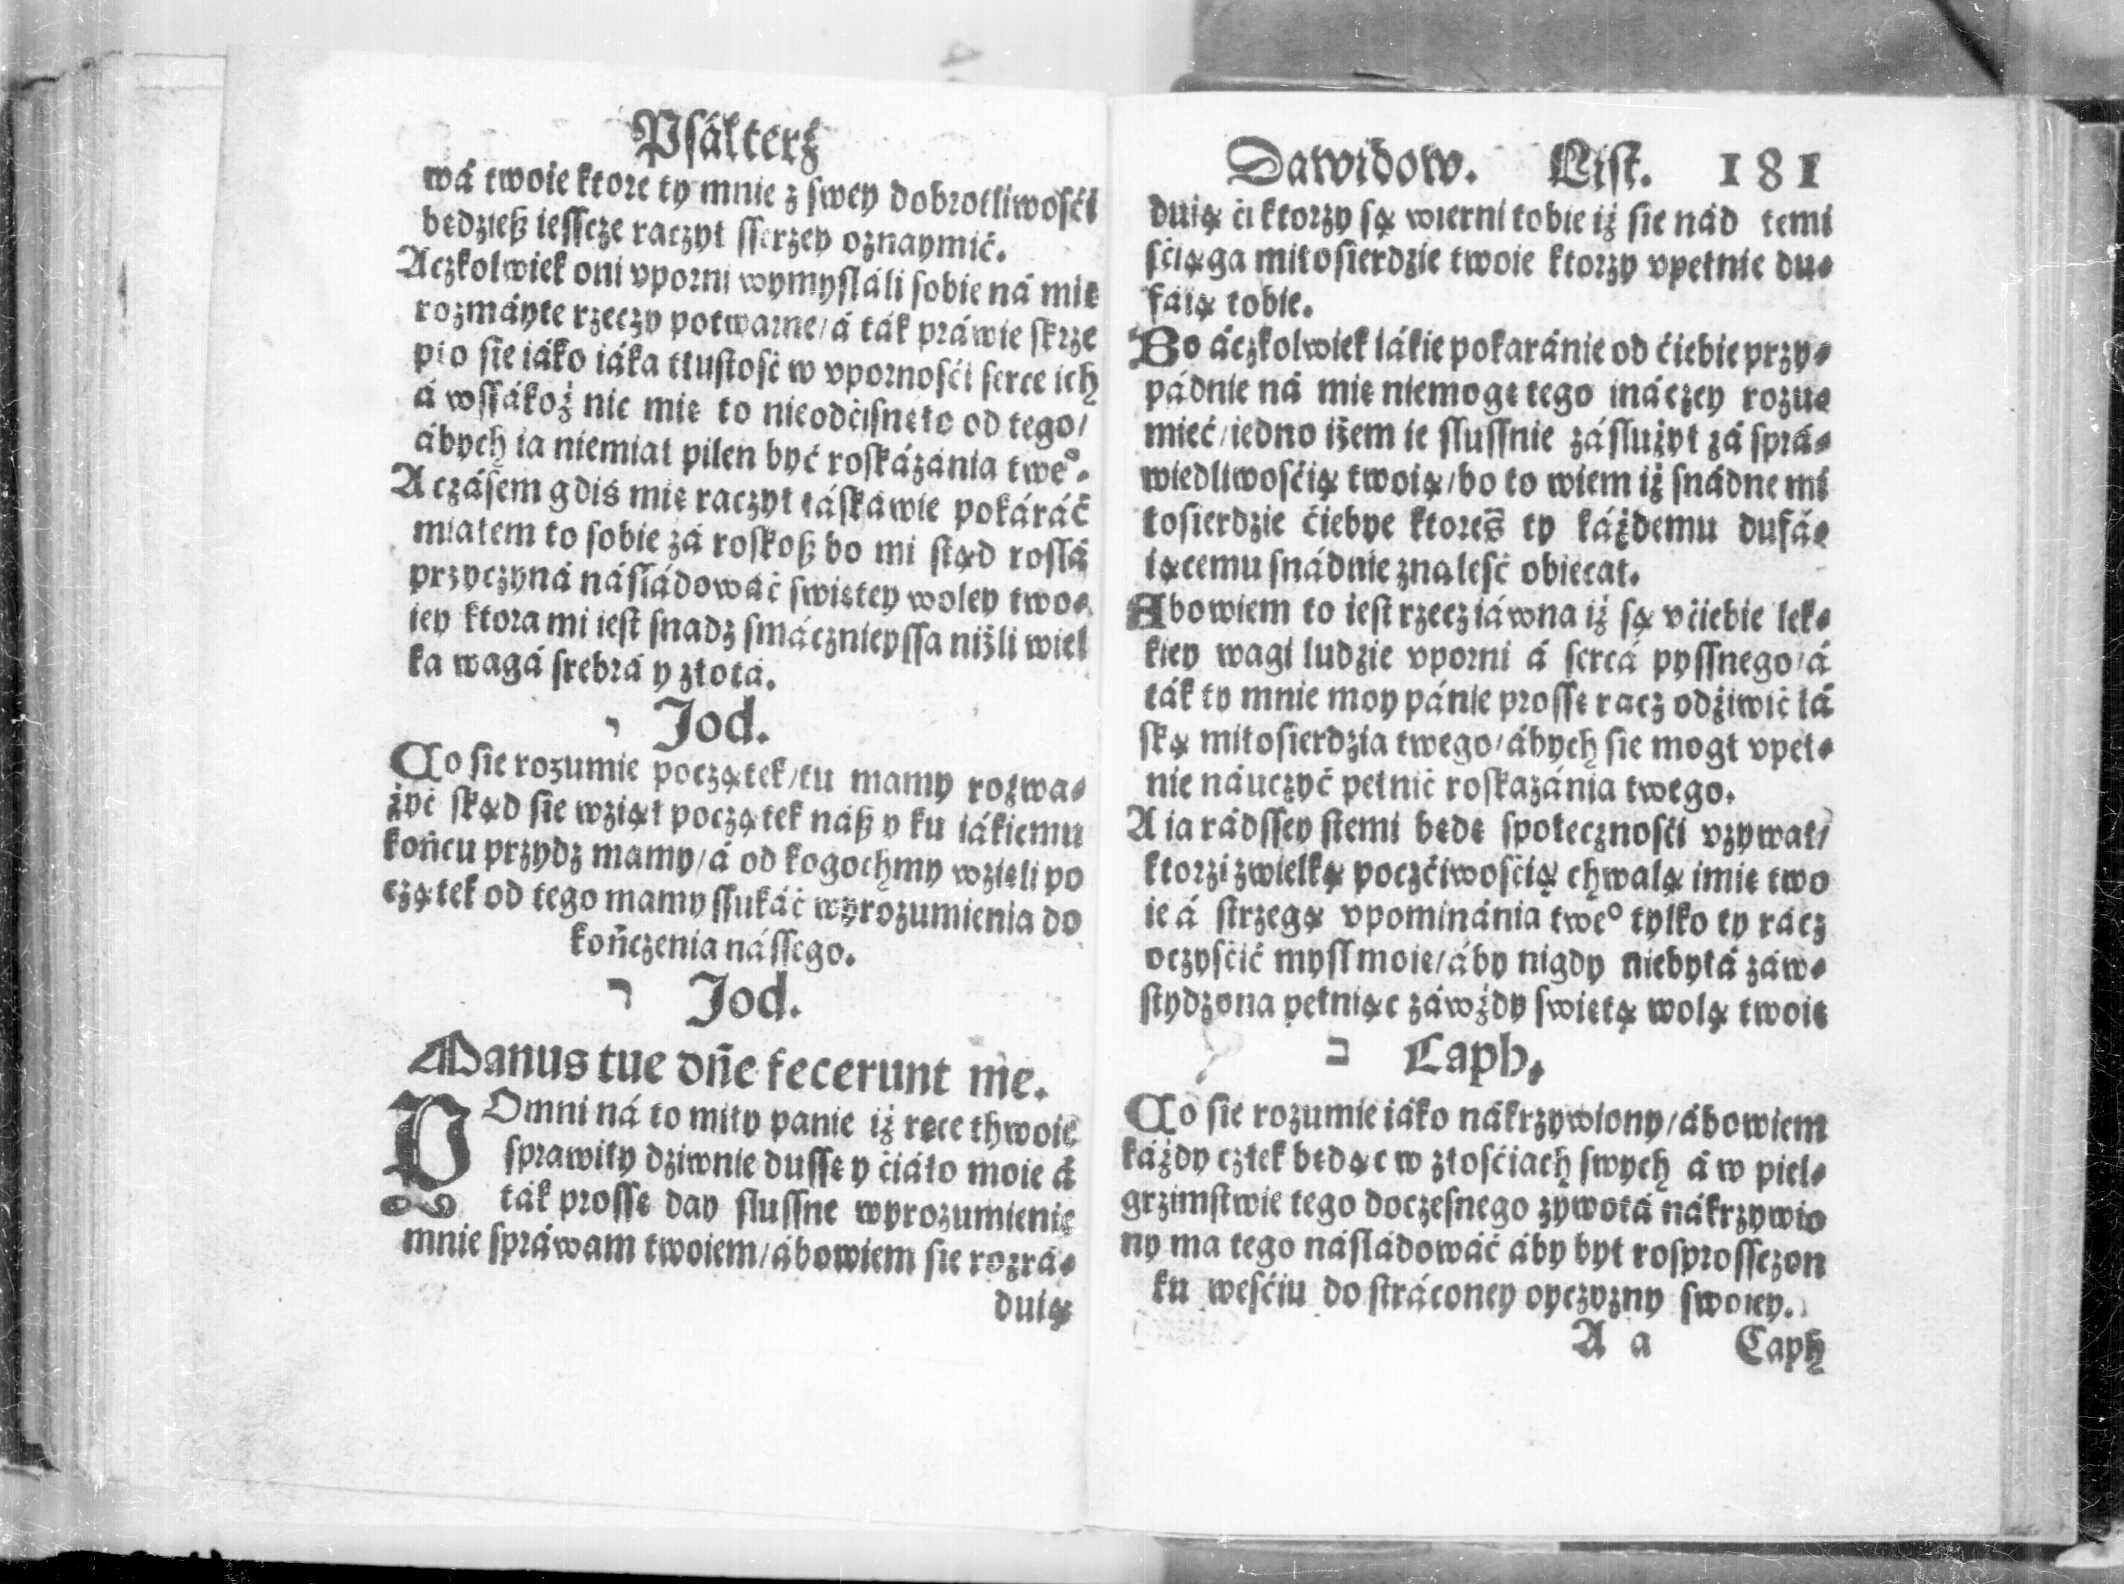 Psálterż
wá twoie ktore ty mnie z swey dobrotliwośći
będzieß iesscze raczył sserzey oznaymić.
Aczkolwiek oni vporni wymysláli sobie ná mię
rozmáyte rzeczy potwarne/á ták práwie skrze
pło sie iáko iáka tłustość w vpornośći serce ich
á wssákoż nic mię to nieodćisnęło od tego/
ábych ia niemiał pilen być roskázánia tweº.
A czásem gdiś mię raczył łáskáwie pokáráć
miałem to sobie zá roskoß bo mi stąd rosłá
przyczyná násládowáć swiętey woley two⸗
iey ktora mi iest snadz smácznieyssa niżli wiel
ka wagá srebrá y złotá.
י Jod.
Co sie rozumie początek/tu mamy rozwa⸗
żyć skąd sie wziął początek náß y ku iákiemu
końcu przydz mamy/á od kogochmy wzięli po
czątek od tego mamy ssukáć wyrozumienia do
kończenia nássego.
י Jod.
Manus tue dñe fecerunt me.
POmni ná to miły panie iż ręce thwoie
sprawiły dziwnie dussę y ćiáło moie á
ták prosse day slussne wyrozumienie
mnie spráwam twoiem/ábowiem sie rozrá⸗
duią
Dawidow. List. 181
duią ći ktorzy są wierni tobie iż sie nád temi
śćiąga miłosierdzie twoie ktorzy vpełnie du⸗
fáią tobie.
Bo áczkolwiek iákie pokaránie od ćiebie przy⸗
pádnie ná mię niemogę tego ináczey rozu⸗
mieć/iedno iżem ie slussnie zásłużył zá sprá⸗
wiedliwośćią twoią/bo to wiem iż snádne mi
łosierdzie ćiebye ktoreś ty káżdemu dufá⸗
iącemu snádnie znaleść obiecał.
Abowiem to iest rzecz iáwna iż są v ćiebie lek⸗
kiey wagi ludzie vporni á sercá pyssnego/á
ták ty mnie moy pánie prosse racz odżiwić łá
ską miłosierdzia twego/ábych sie mogł vpeł⸗
nie náuczyć pełnić roskazánia twego.
A ia rádssey stemi będę społecznośći vzywał/
ktorzi zwielką poczćiwośćią chwalą imię two
ie á strzegą vpominánia tweº tylko ty rácz
oczyśćić mysl moię/áby nigdy niebyłá záw⸗
stydzona pełniąc záwżdy swiętą wolą twoię
כ Caph.
Co sie rozumie iáko nákrzywiony/ábowiem
káżdy człek będąc w złośćiach swych á w piel⸗
grzimstwie tego doczesnego zywotá nákrzywio
ny ma tego násládowáć áby był rosprossczon
ku weśćiu do stráconey oyczyzny swoiey.
A a Caph